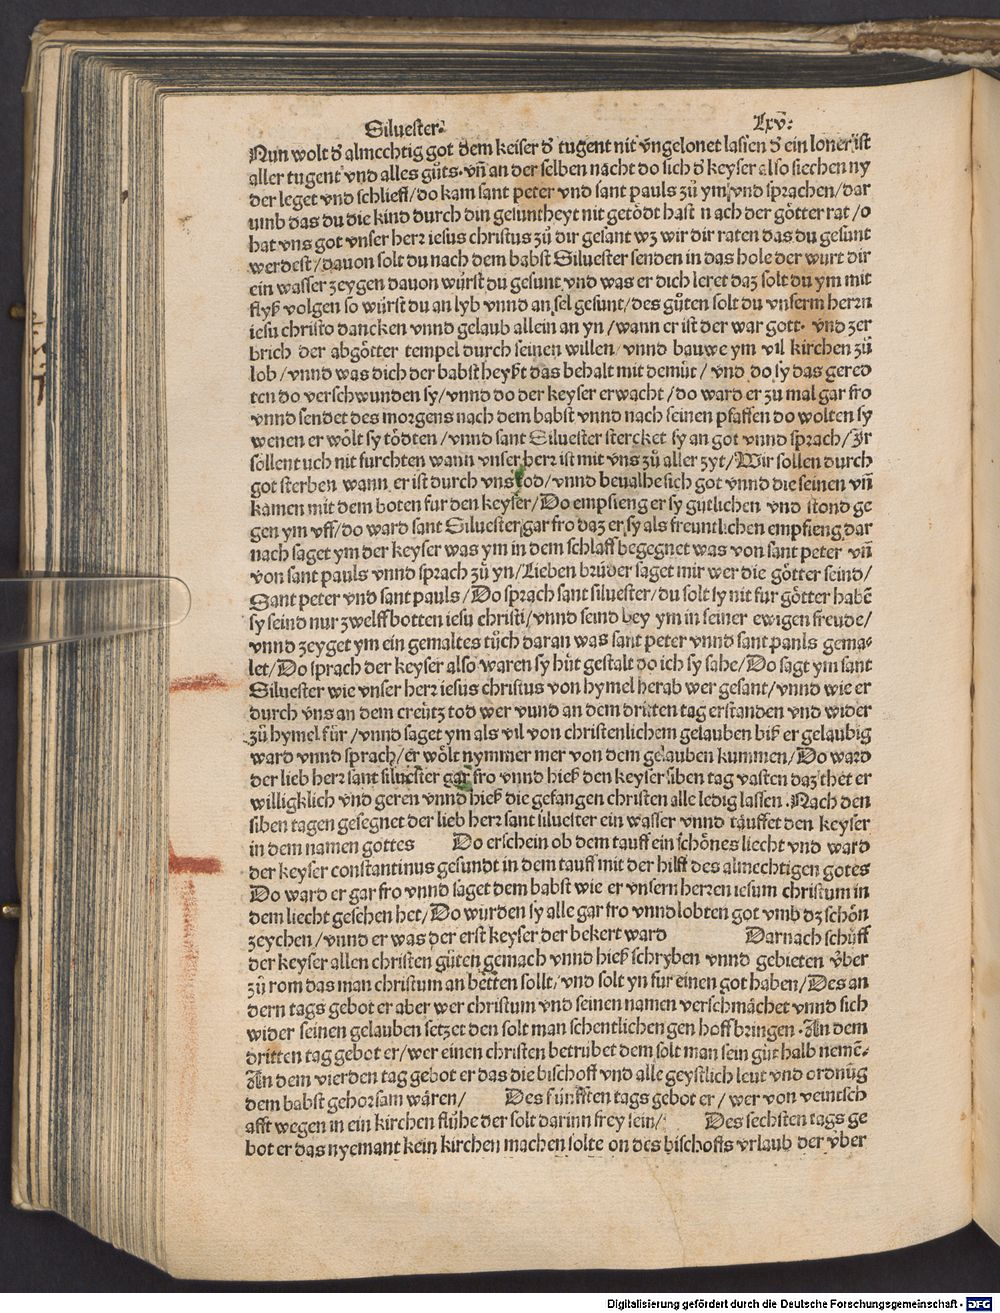 Siluester· Lxv̄:
Nun wolt d̕ almechtig got dem keiser d̕ tugent nit vngelonet lassen d̕ ein loner ist
aller tugent vnd alles gůts· vn̄ an der selben nacht do sich d̕ keyser also siechen ny
der leget vnd schlieff / do kam sant peter vnd sant pauls zů ym vnd sprachen / dar
umb das du die kind durch din gesuntheyt nit getödt hast nach der götter rat / o
hat vns got vnser herr iesus christus zů dir gesant wz wir dir raten das du gesunt
werdest / dauon solt du nach dem babst Siluester senden in das hole der wurt dir
ein wasser zeygen dauon würst du gesunt vnd was er dich leret daz solt du ym mit
flyß volgen so würst du an lyb vnnd an sel gesunt / des gůten solt du vnserm herrn
iesu christo dancken vnnd gelaub allein an yn / wann er ist der war gott· vnd zer
brich der abgötter tempel durch seinen willen vnnd bauwe ym vil kirchen zů
lob / vnnd was dich der babst heyßt das behalt mit demüt / vnd do sy das gered
ten do verschwunden sy / vnnd do der keyser erwacht / do ward er zu mal gar fro
vnnd sendet des morgens nach dem babst vnnd nach seinen pfaffen do wolten sy
wenen er wölt sy tödten / vnnd sant Siluester stercket sy an got vnnd sprach / Ir
söllent uch nit furchten wann vnser herr ist mit vns zů aller zyt / Wir sollen durch
got sterben wann er ist durch vns tod / vnnd beualhe sich got vnnd die seinen vn̄
kamen mit dem boten fur den keyser / Do empfieng er sy gütlichen vnd stond ge
gen ym vff / do ward sant Siluester gar fro daz er sy als freuntlichen empfieng dar
nach saget ym der keyser was ym in dem schlaff begegnet was von sant peter vn̄
von sant pauls vnnd sprach zů yn / Lieben brüder saget mir wer die götter seind /
Sant peter vnd sant pauls / Do sprach sant siluester / du solt sy nit fur götter habē
sy seind nur zwelffbotten iesu christi / vnnd seind bey ym in seiner ewigen freude /
vnnd zeyget ym ein gemaltes tůch daran was sant peter vnnd sant pauls gema⸗
let / Do sprach der keyser also waren sy hüt gestalt do ich sy sahe / Do sagt ym sant
Siluester wie vnser herr iesus christus von hymel herab wer gesant / vnnd wie er
durch vns an dem creütz tod wer vnnd an dem dritten tag erstanden vnd wider
zů hymel für / vnnd saget ym als vil von christenlichem gelauben biß er gelaubig
ward vnnd sprach / er wölt nymmer mer von dem gelauben kummen / Do ward
der lieb herr sant siluester gar fro vnnd hieß den keyser siben tag vasten daz thet er
willigklich vnd geren vnnd hieß die gefangen christen alle ledig lassen . Nach den
siben tagen gesegnet der lieb herr sant siluester ein wasser vnnd tauffet den keyser
in dem namen gottes Do erschein ob dem tauff ein schönes liecht vnd ward
der keyser constantinus gesundt in dem tauff mit der hilff des almechtigen gotes
Do ward er gar fro vnnd saget dem babst wie er vnsern herren iesum christum in
dem liecht gesehen het / Do wurden sy alle gar fro vnnd lobten got vmb dz schön
zeychen / vnnd er was der erst keyser der bekert ward Darnach schůff
der keyser allen christen güten gemach vnnd hieß schryben vnnd gebieten v̈ber
zů rom das man christum an betten sollt / vnd solt yn fur einen got haben / Des an
dern tags gebot er aber wer christum vnd seinen namen verschmächet vnnd sich
wider seinen gelauben setzet den solt man schentlichen gen hoff bringen · An dem
dritten tag gebot er / wer einen christen betrubet dem solt man sein gůt halb nemē⸗
An dem vierden tag gebot er das die bischoff vnd alle geystlich leut vnd ordnūg
dem babst gehorsam wären / Des fünfften tags gebot er / wer von veintsch
afft wegen in ein kirchen flühe der solt darinn frey sein / Des sechsten tags ge
bot er das nyemant kein kirchen machen solte on des bischoffs vrlaub der v̈ber
Digitalisierung gefördert durch die Deutsche Forschungsgemeinschaft - DFG